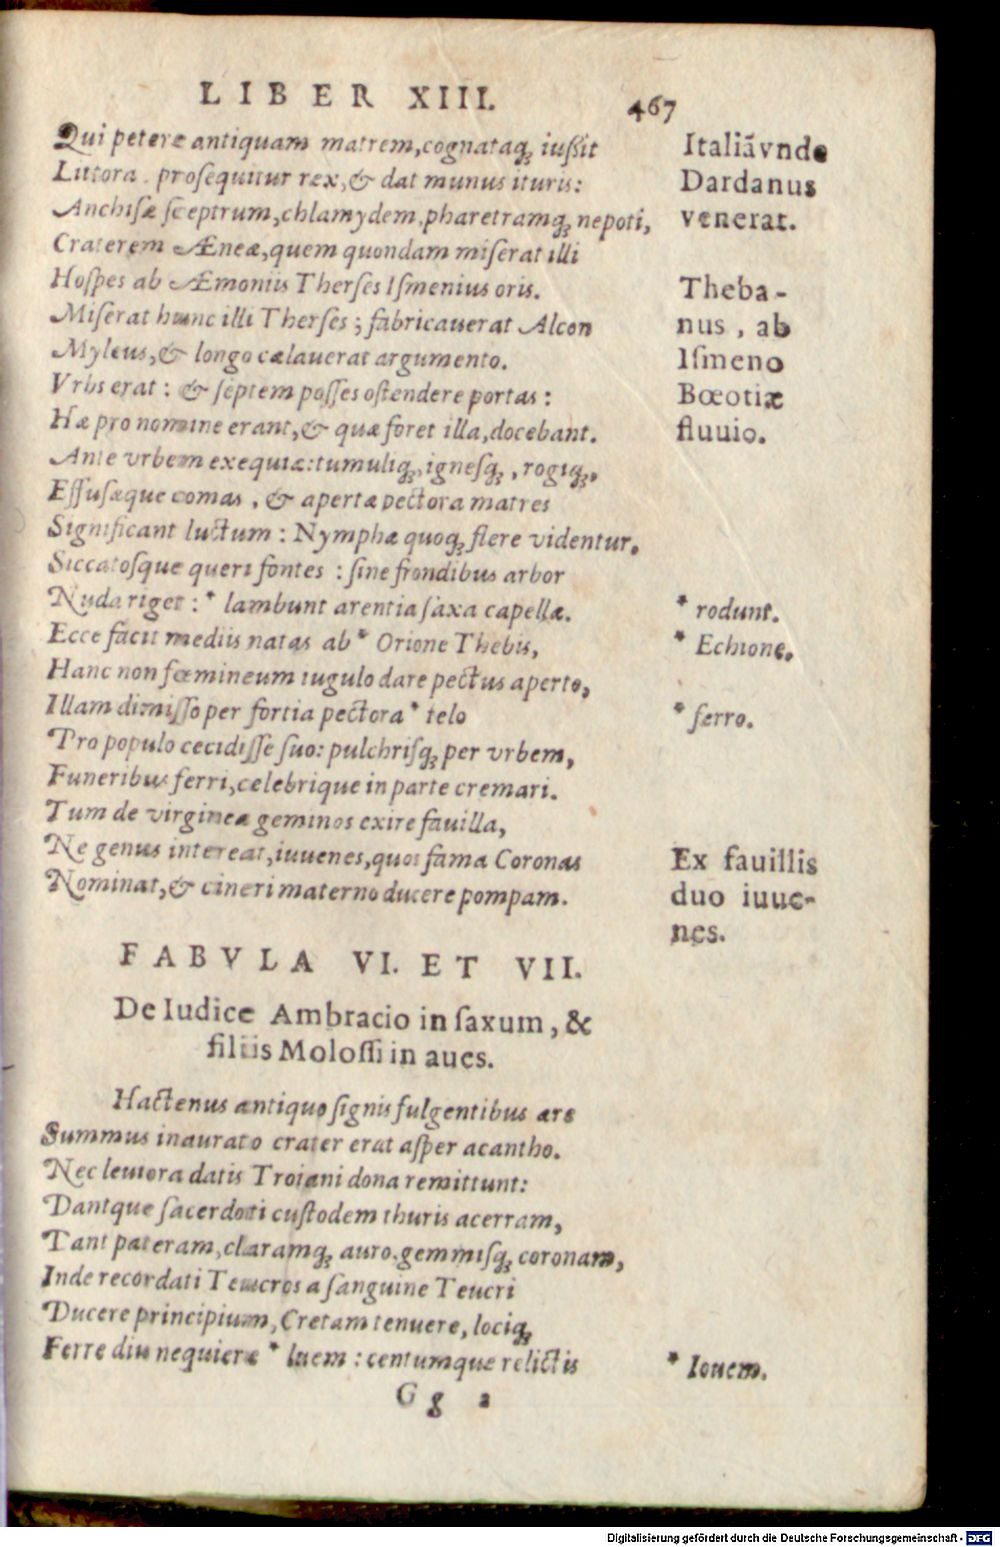 LIBER XIII. 467
Qui petere antiquam matrem, cognataq́ꝫ iußit
Littora. prosequitur rex, & dat munus ituris:
Anchisæ sceptrum, chlamydem, pharetramq́ꝫ nepoti,
Craterem Æneæ, quem quondam miserat illi
Hospes ab Æmoniis Therses Ismenius oris.
Miserat hunc illi Therses; fabricauerat Alcon
Myleus, & longo cælauerat argumento.
Vrbs erat: & septem posses ostendere portas:
Hæ pro nomine erant, & quæ foret illa, docebant.
Ante vrbem exequiæ: tumuliq́ꝫ, ignesq́ꝫ, rogiq́ꝫ,
Effusæque comas, & apertæ pectora matres
Significant luctum: Nymphæ quoq́ꝫ flere videntur,
Siccatosque queri fontes: sine frondibus arbor
Nuda riget: * lambunt arentia saxa capellæ.
Ecce facit mediis natas ab * Orione Thebis,
Hanc non fœmineum iugulo dare pectus aperto,
Illam dimisso per fortia pectora * telo
Pro populo cecidisse suo: pulchrisq́ꝫ per vrbem,
Funeribus ferri, celebrique in parte cremari.
Tum de virginea geminos exire fauilla,
Ne genus intereat, iuuenes, quos fama Coronas
Nominat, & cineri materno ducere pompam.
Italiā vnde
Dardanus
venerat.
Theba-
nus, ab
Ismeno
Bœotiæ
fluuio.
* rodunt.
* Echione.
* ferro.
Ex fauillis
duo iuue-
nes.
FABVLA VI. ET VII.
De Iudice Ambracio in saxum, &
filiis Molossi in aues.
Hactenus antiquo signis fulgentibus ære
Summus inaurato crater erat asper acantho.
Nec leuiora datis Troiani dona remittunt:
Dantque sacerdoti custodem thuris acerram,
Dant pateram, claramq́ꝫ auro, gemmisq́ꝫ coronam,
Inde recordati Teucros a sanguine Teucri
Ducere principium, Cretam tenuere, lociq́ꝫ
Ferre diu nequiere * luem: centumque relictis
* Iouem.
Gg 2
Digitalisierung gefördert durch die Deutsche Forschungsgemeinschaft - DFG